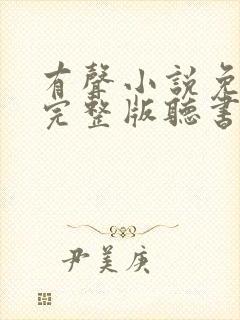 有聲小說免
完整版聽書
尹美庚